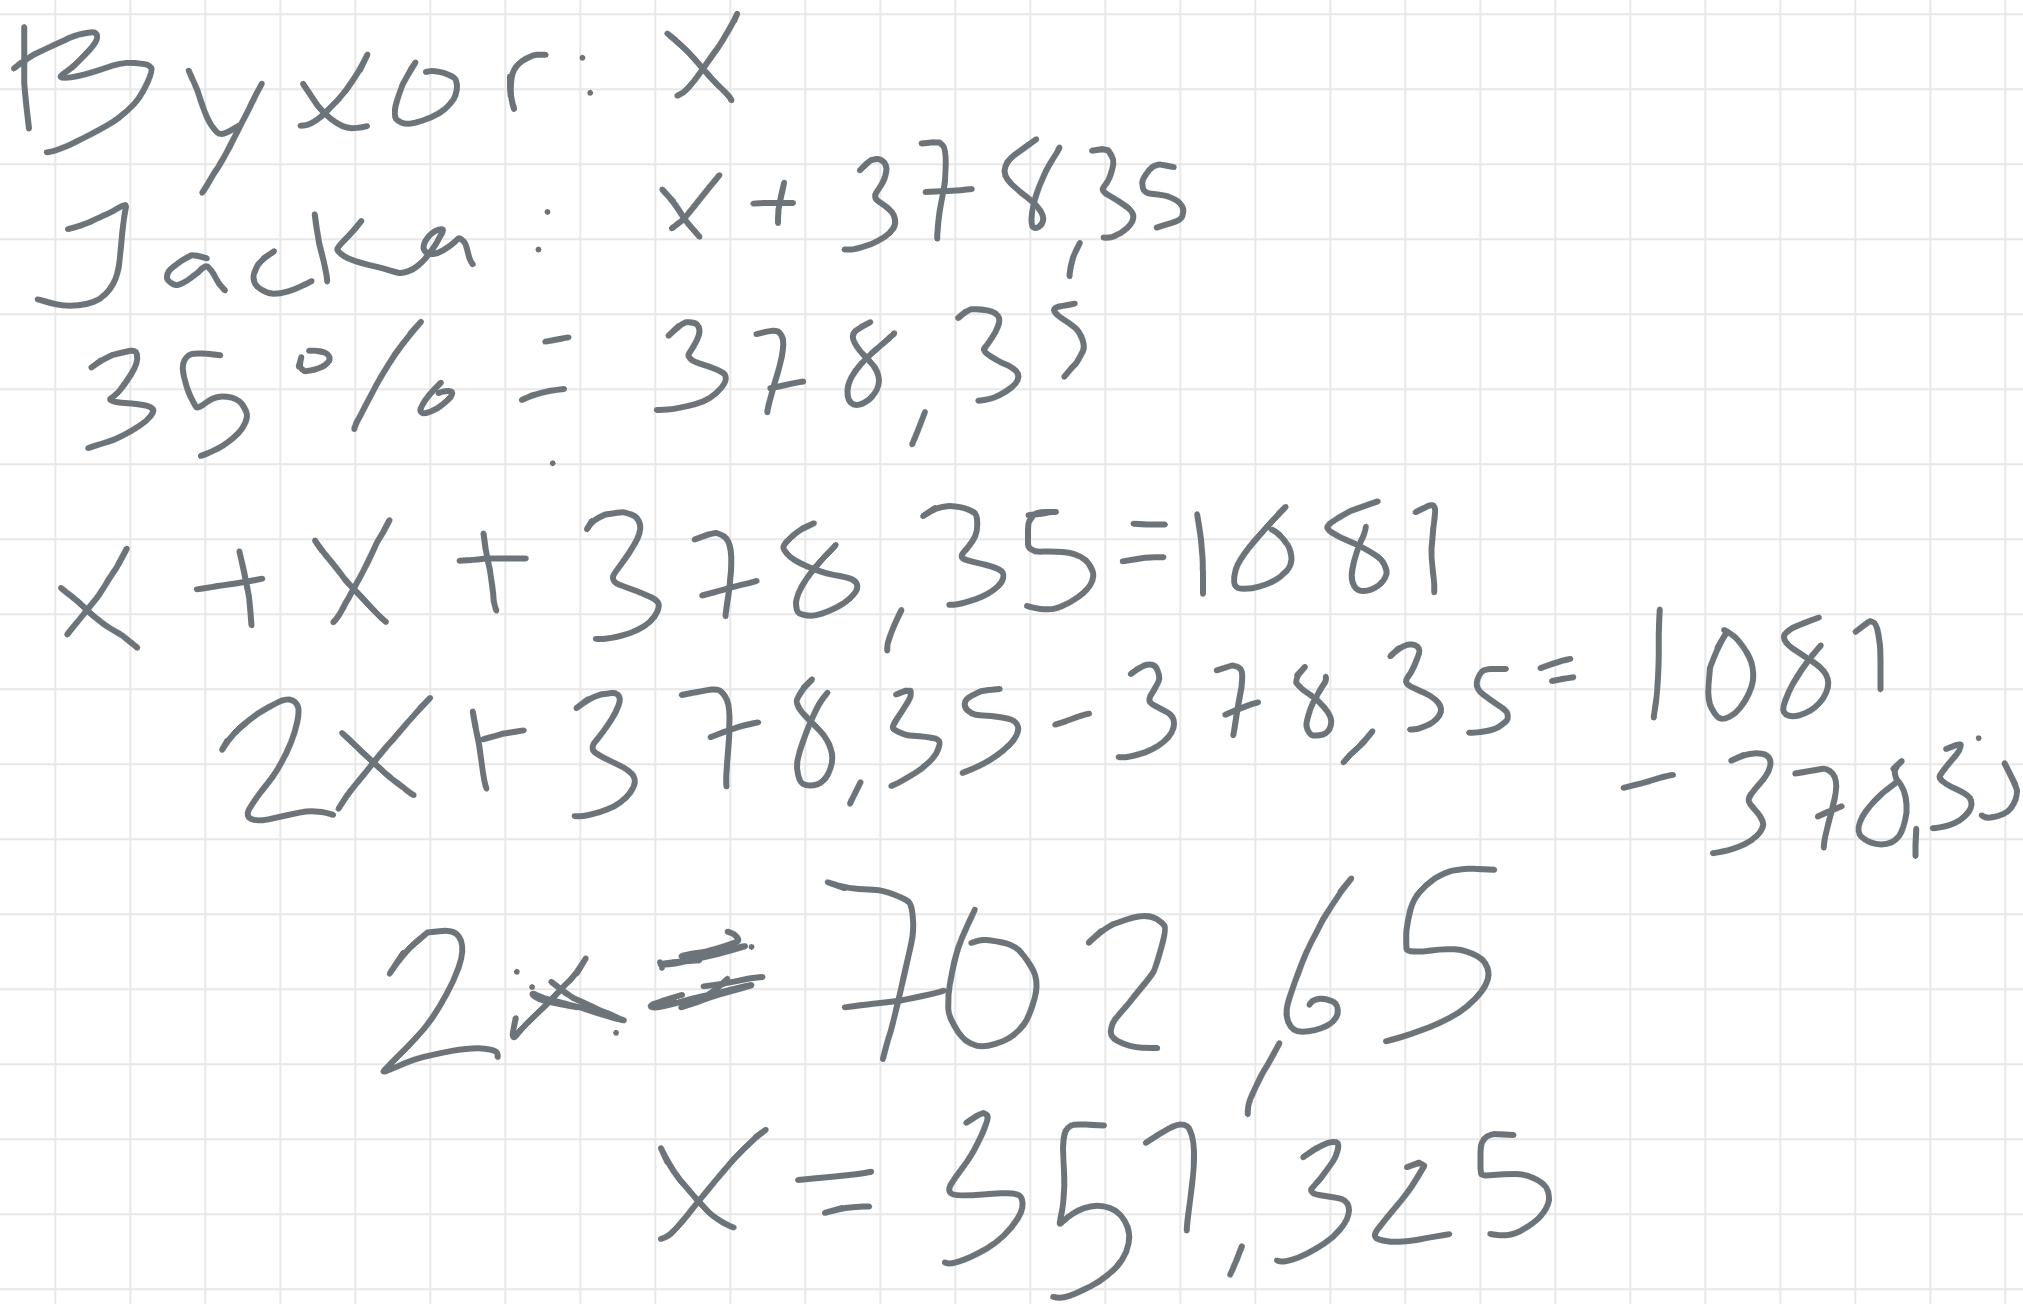 Byxor: x
Jacka: x + 378,35
35 % = 378,35
x + x + 378,35 = 1081
2x + 378,35 - 378,35 = 1081
- 378,35
2x = 702,65
x = 351,325